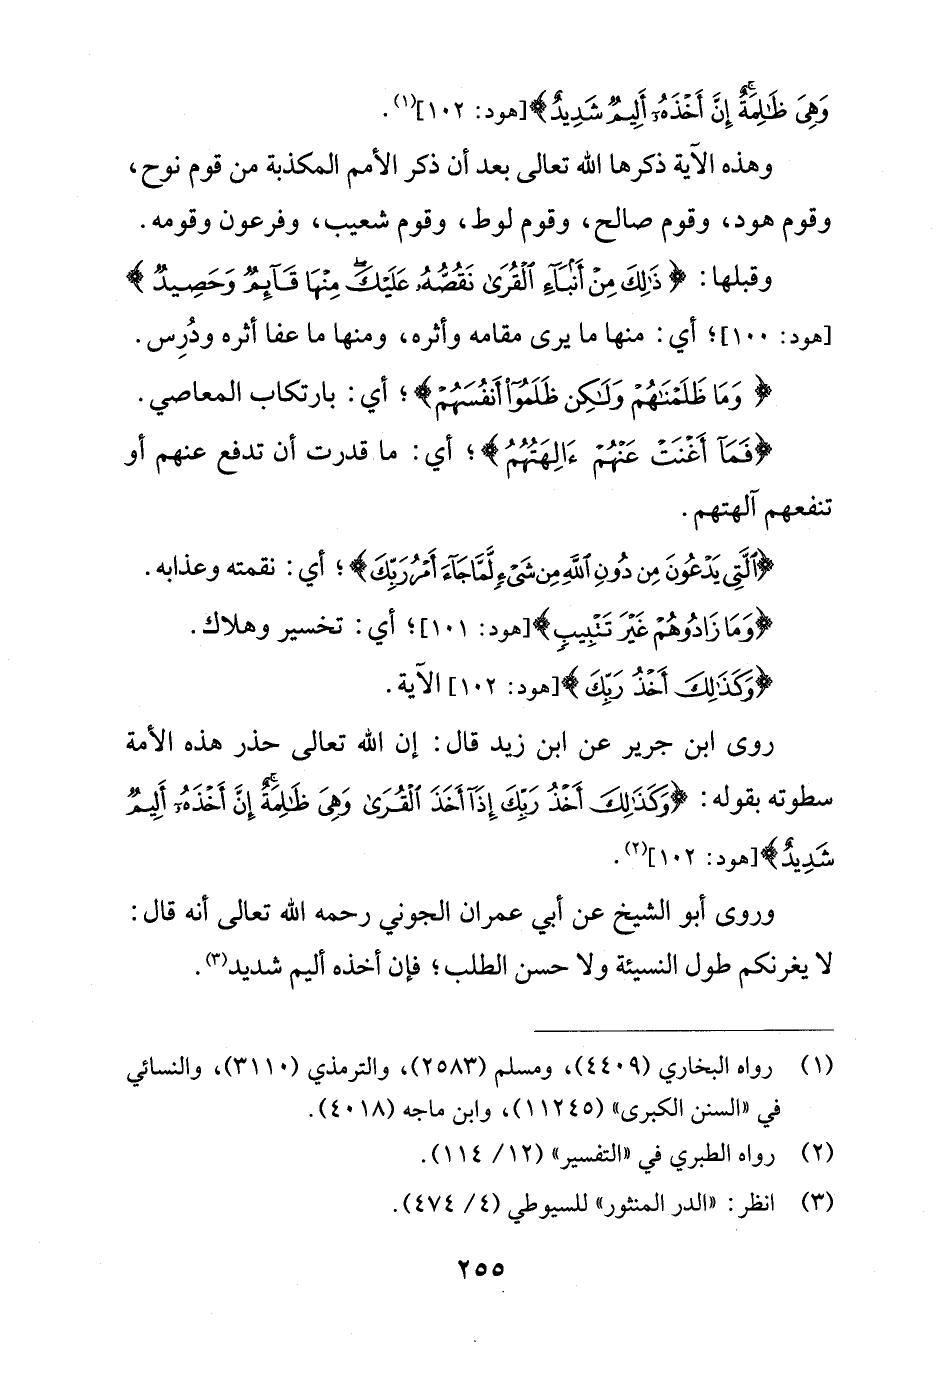 وَهِيَ ظَالِمَةٌ إِنَّ أَخْذَهُۥ أَلِيمٌ شَدِيدٌ﴾[هود: ١٠٢](١).
وهذه الآية ذكرها الله تعالى بعد أن ذكر الأمم المكذبة من قوم نوح،
وقوم هود، وقوم صالح، وقوم لوط، وقوم شعيب، وفرعون وقومه.
وقبلها: ﴿ذَٰلِكَ مِنْ أَنۢبَآءِ ٱلْقُرَىٰ نَقُصُّهُۥ عَلَيْكَ ۖ مِنْهَا قَآئِمٌ وَحَصِيدٌ﴾
[هود: ١٠٠]؛ أي: منها ما يرى مقامه وأثره، ومنها ما عفا أثره ودُرِس.
﴿وَمَا ظَلَمْنَٰهُمْ وَلَٰكِن ظَلَمُوٓا۟ أَنفُسَهُمْ﴾؛ أي: بارتكاب المعاصي.
﴿فَمَآ أَغْنَتْ عَنْهُمْ ءَالِهَتُهُمُ﴾؛ أي: ما قدرت أن تدفع عنهم أو
تنفعهم آلهتهم.
﴿ٱلَّتِى يَدْعُونَ مِن دُونِ ٱللَّهِ مِن شَىْءٍ لَّمَّا جَآءَ أَمْرُ رَبِّكَ﴾؛ أي: نقمته وعذابه.
﴿وَمَا زَادُوهُمْ غَيْرَ تَتْبِيبٍ﴾[هود: ١٠١]؛ أي: تخسير وهلاك.
﴿وَكَذَٰلِكَ أَخْذُ رَبِّكَ﴾[هود: ١٠٢] الآية.
روى ابن جرير عن ابن زيد قال: إن الله تعالى حذر هذه الأمة
سطوته بقوله: ﴿وَكَذَٰلِكَ أَخْذُ رَبِّكَ إِذَآ أَخَذَ ٱلْقُرَىٰ وَهِىَ ظَٰلِمَةٌ ۚ إِنَّ أَخْذَهُۥٓ أَلِيمٌ
شَدِيدٌ﴾[هود: ١٠٢](٢).
وروى أبو الشيخ عن أبي عمران الجوني رحمه الله تعالى أنه قال:
لا يغرنكم طول النسيئة ولا حسن الطلب؛ فإن أخذه أليم شديد(٣).
(١) رواه البخاري (٤٤٠٩)، ومسلم (٢٥٨٣)، والترمذي (٣١١٠)، والنسائي
في «السنن الكبرى» (١١٢٤٥)، وابن ماجه (٤٠١٨).
(٢) رواه الطبري في «التفسير» (١٢/ ١١٤).
(٣) انظر: «الدر المنثور» للسيوطي (٤/ ٤٧٤).
٢٥٥